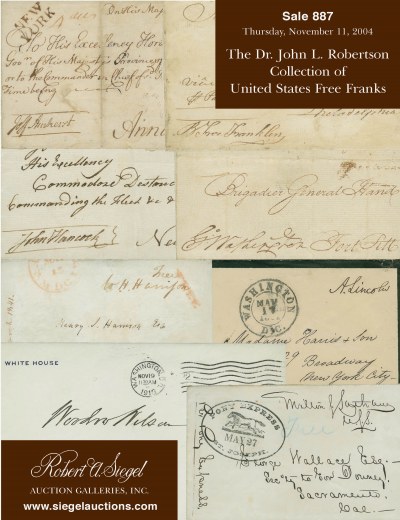 Sale 887
Thursday, November 11, 2004
The Dr. John L. Robertson
Collection of
United States Free Franks
NEW
YORK
On His Maj
To His Excellency
Time being
Jeff Amherst
Anna
B Free Franklin
Philadelphia
His Excellency
Commodore Destain
Commanding the Fleet &c &
John Hancock
Brigadier General Hand
Go Washington
Fort Pitt
Free
W. H. Harrison
Henry S. Harrison Esq
A. Lincoln
WASHINGTON
MAY
17
D.C.
Madame Harris & Son
Broadway
New York City
WHITE HOUSE
WASHINGTON, D.C.
NOV 19
Woodrow Wilson
PONY EXPRESS
MAY 27
ST. JOSEPH.
Milton S Latham
U.S.S.
George Wallace Esq
Secty to Gov Downey
Sacramento
Cal
Robert A. Siegel
AUCTION GALLERIES, INC.
www.siegelauctions.com